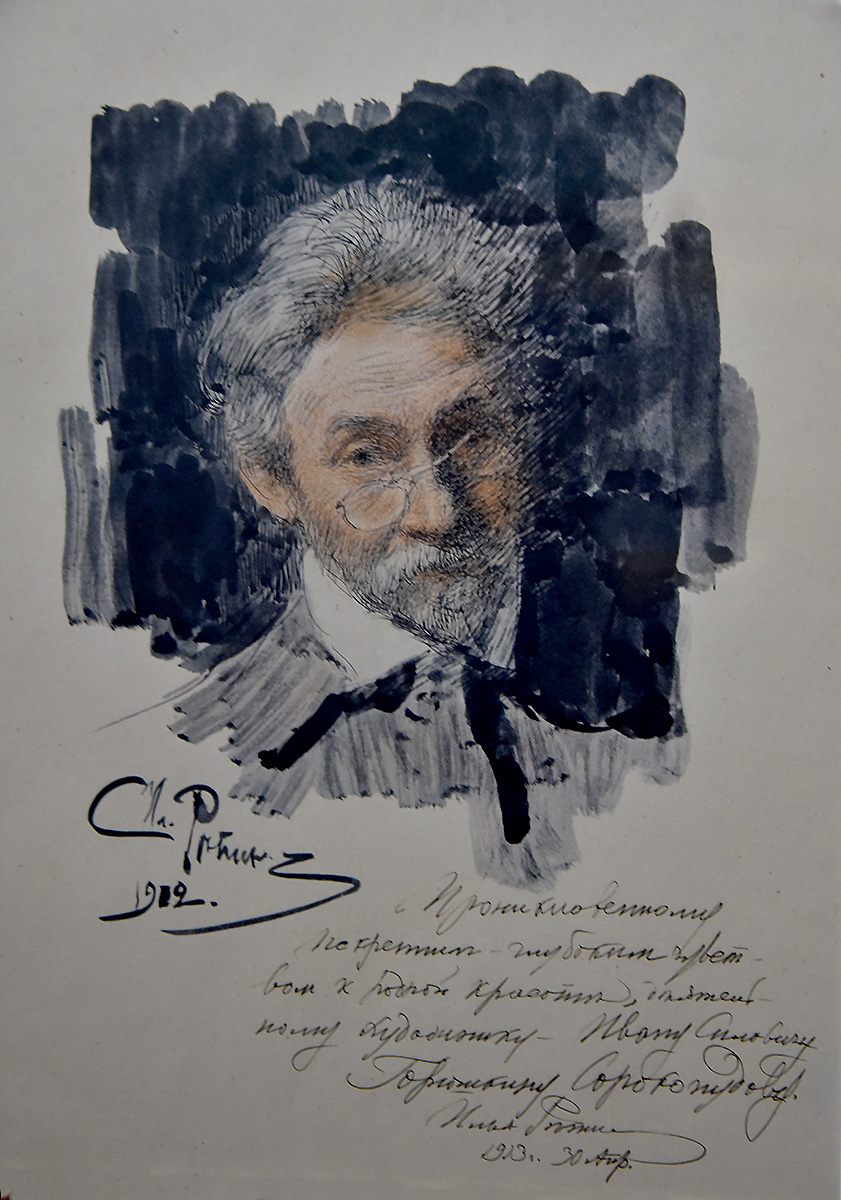 Ил. Рѣпинъ
1912.
Проникновенному
искреннимъ глубокимъ чувст-
вомъ к родной красотѣ,
ному художнику Ивану Силовичу
Горюшкину Сорокопудову.
Илья Рѣпинъ
1913 г. 30 Апр.